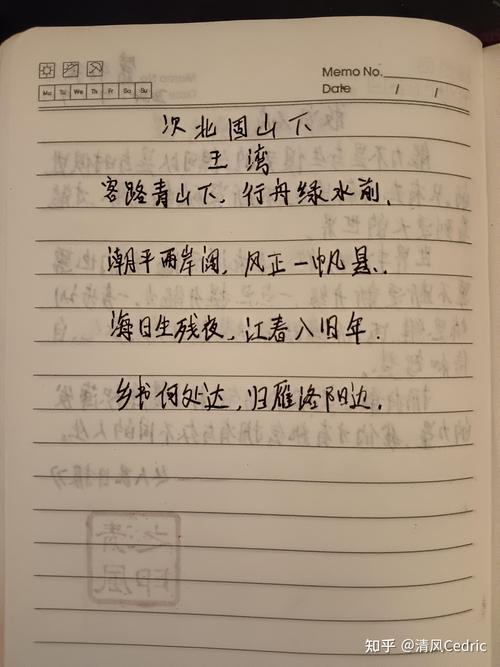 Memo No.
Mo Tu We Th Fr Sa Su
Date / /
次北固山下
王湾
客路青山下,行舟绿水前,
潮平两岸阔,风正一帆悬.
海日生残夜,江春入旧年.
乡书何处达,归雁洛阳边.
知乎 @清风Cedric